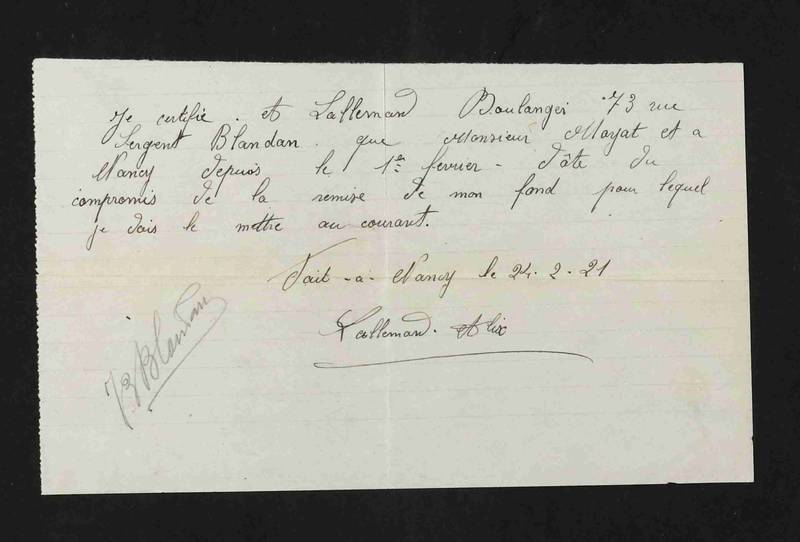 Je certifie . A Lallemand Boulanger 73 rue
Sergent Blandan . que Monsieur Mayat et a
Nancy depuis le 1er fevrier - dâte du
compromis de la remise de mon fond pour lequel
je dois le mettre au courant.
Fait - a - Nancy le 24. 2. 21
Lallemand. Alix
73 Blandan